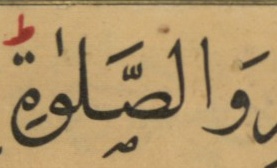 وَالصَّلوٰةِ ؕ